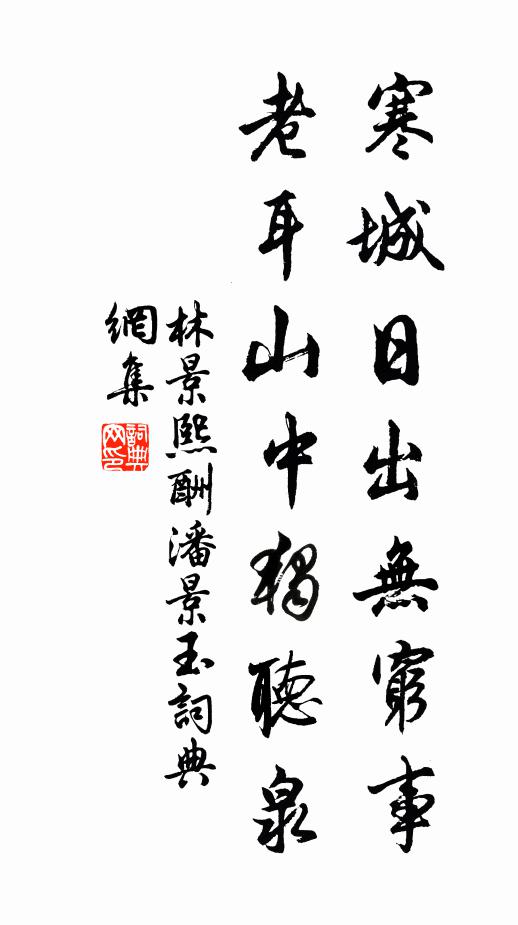 寒城日出無窮事
老耳山中獨聽泉
林景熙酬潘景玉詞典
網集
詞典网印